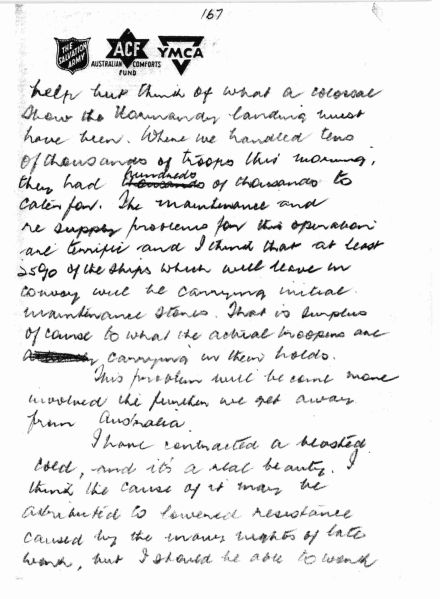 167
THE SALVATION ARMY
ACF
AUSTRALIAN COMFORTS FUND
YMCA
help but think of what a colossal
show the Normandy landing must
have been. Where we handled tens
of thousands of troops this morning,
they had hundreds of thousands to
cater for. The maintenance and
re supply problems for this operation
are terrific and I think that at least
25% of the ships which will leave in
convoy will be carrying initial
maintenance stores. That is surplus
of cause to what the actual troopers are
carrying in their holds.
This problem will become more
involved the further we get away
from Australia.
I have contracted a blasted
cold, and it's a real beauty. I
think the cause of it may be
attributed to lowered resistance
caused by the many nights of late
work, but I should be able to work